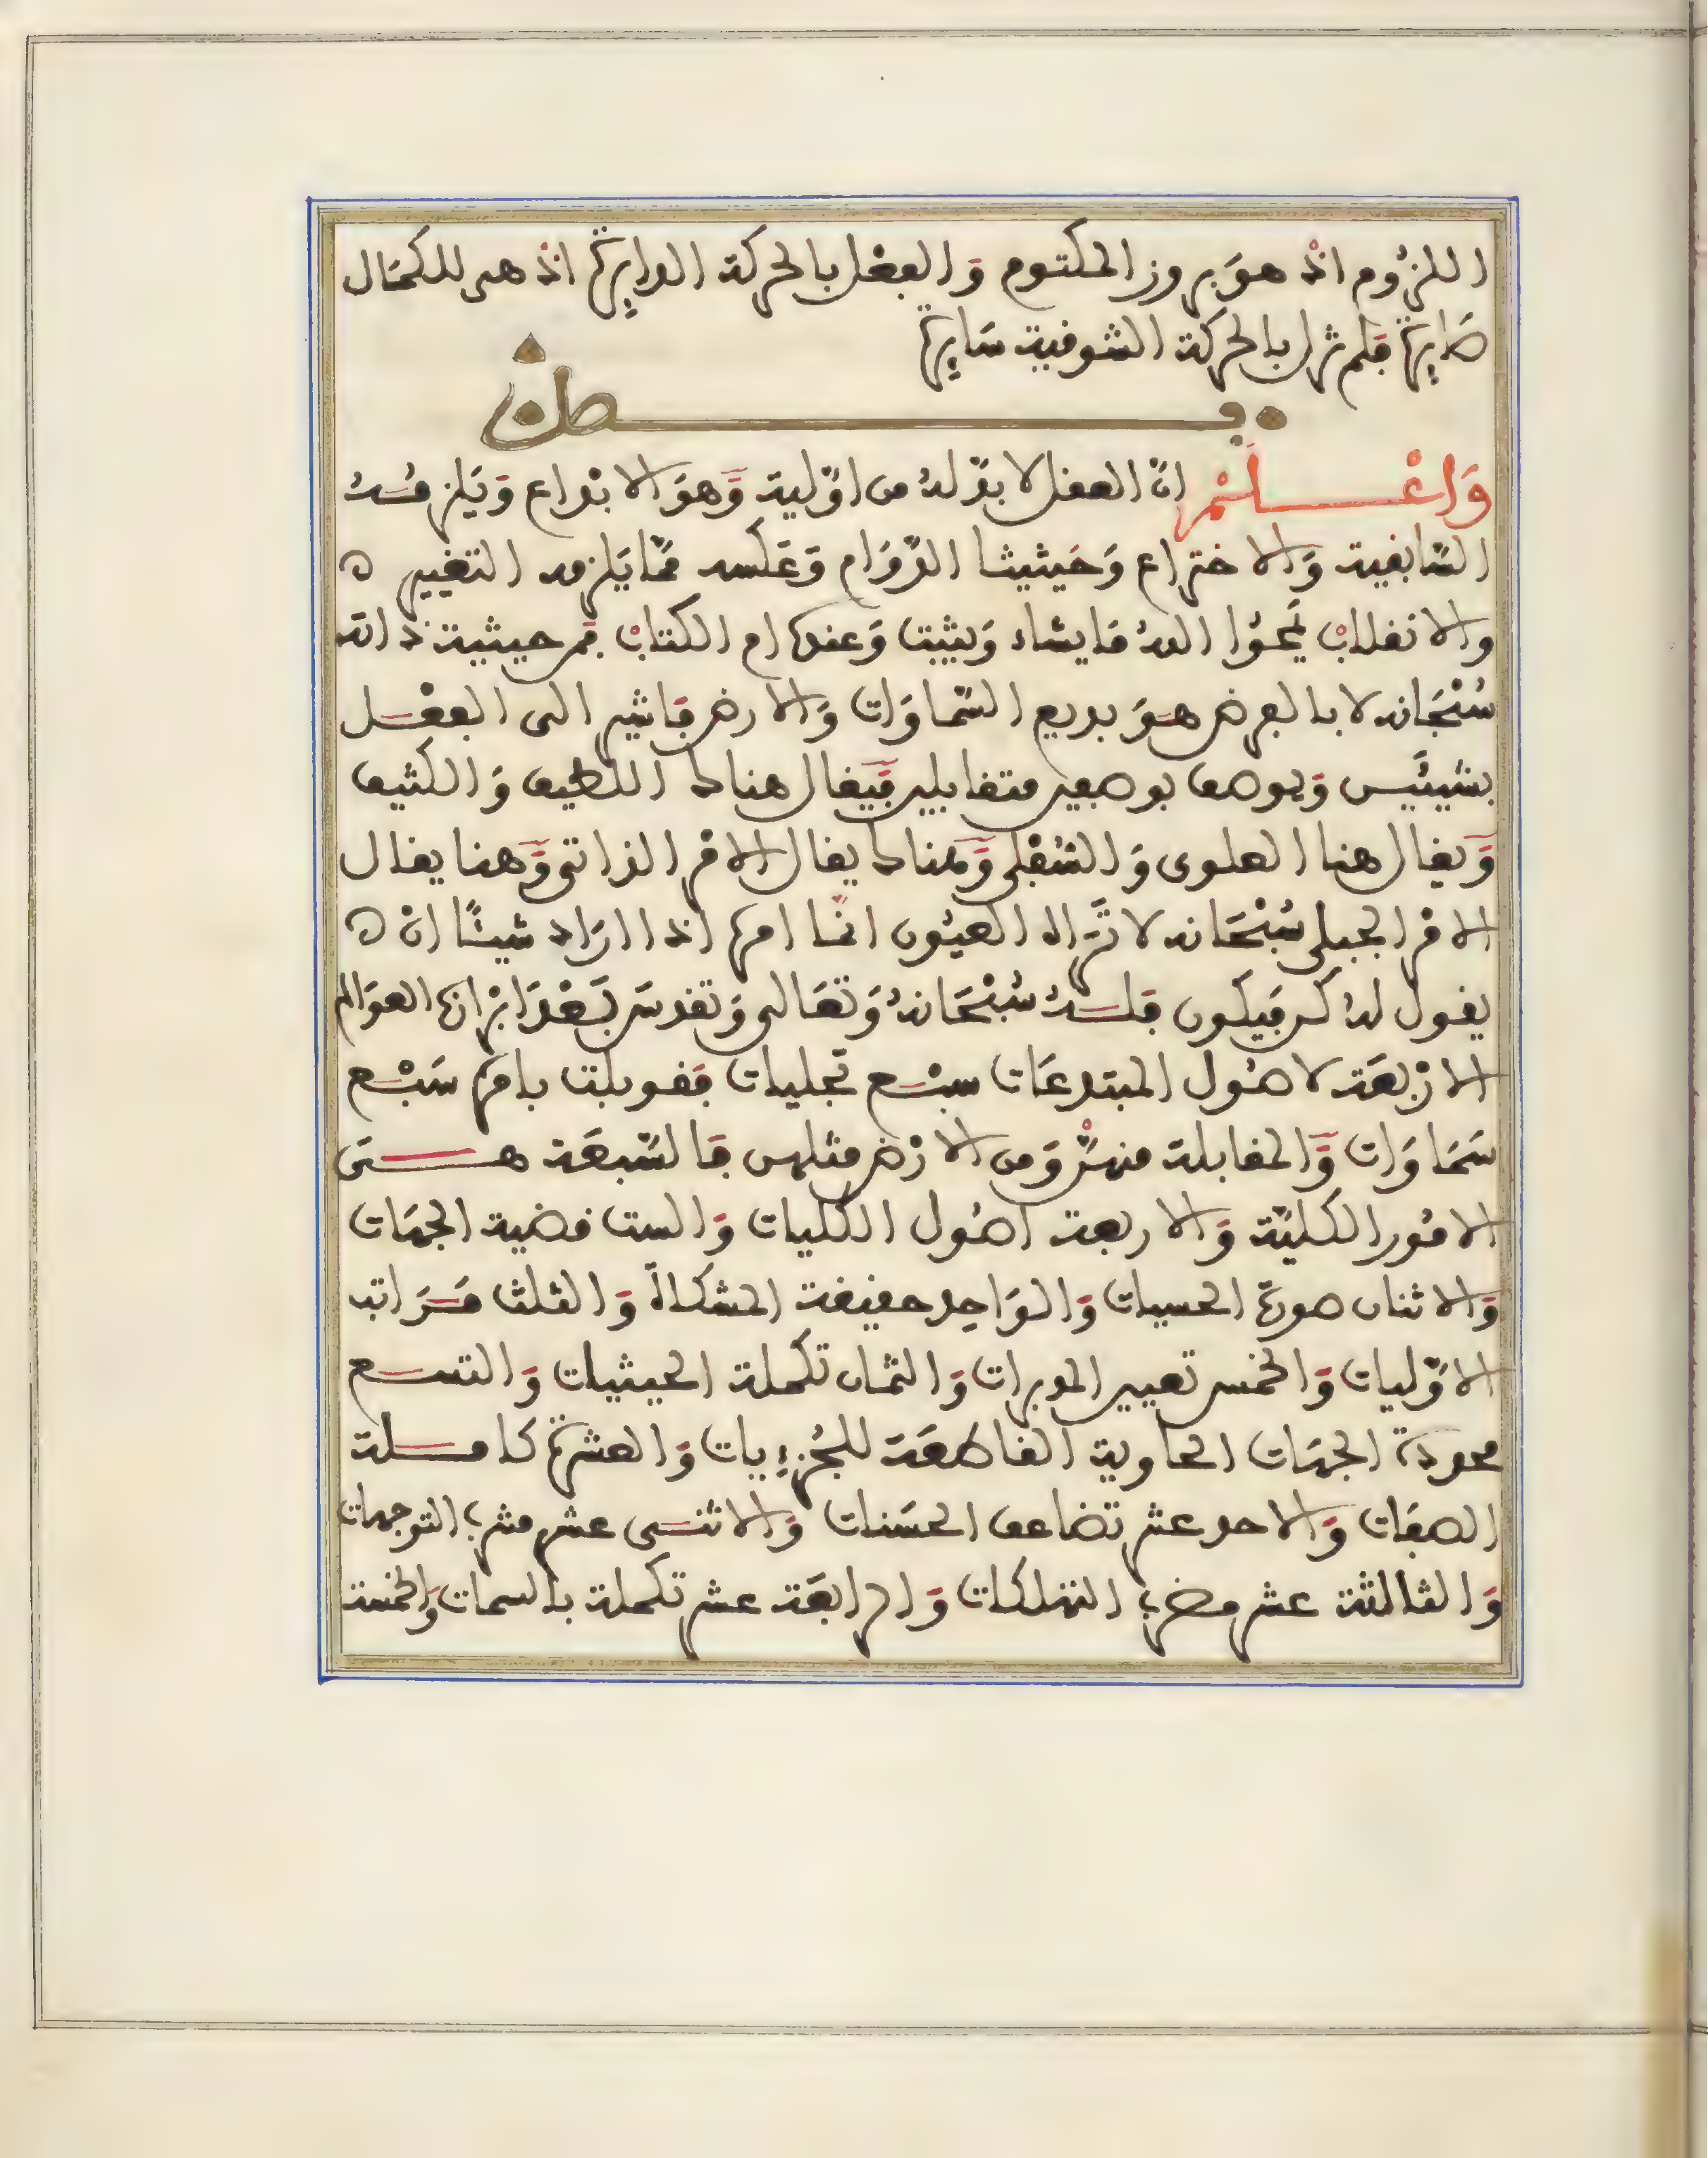 اللزُوم اذْ هوَ بروز المكتوم وَالفعْل بالحركة الدايِرة اذْ هى للكمَال
صَايِرة فلم تزل بالحركة الشوقية سَايِرة
فصل
وَاعْلَمْ انّ العقل لا بدّ لهُ من اوّلية وَهوَ الابْداع وَيَلزمُهُ
السّابقية وَالاختراع وَحَيثيثا الدّوَام وَعَكسه ممّا يَلزمه التغيير ه
والانقلابْ يَمحُوا اللهُ مَا يشاء وَيثبت وَعنده ام الكتابْ فمن حيثية ذاته
سُبْحَانه لا بالعرض هوَ بديع السّماوَات وَالارض فاشير الى العقـل
بشيئَيـن وَيوصف بوصفين متقابلين فيَقال هناك اللطيف وَالكثيف
وَيقال هنا العلوى وَالسُّفْلى وَهناك يقال الامْر الذاتى وَهنا يقال
الامْر الجبلى سُبْحَانه لا تَرَاه العيُون انمّا امره اذا ارَاد شيئًا انْ ه
يقول لهُ كن فيَكون فلـهُ سُبْحَانهُ وَتعَالى وَتقدسَ بَعْدَ ابْراز العوَالم
الارْبعَة لاصُول المبتدعَات سبْـع تجليات فقوبلت بامره سَبْع
سَمَاوَات وَالمقابلة منهنّ وَمن الارْض مثلهن فالسّبعَة هــى
الامُور الكليّة وَالاربعة اصُول الكليات وَالست قضية الجهَات
وَالاثنان صورة الحسيات وَالوَاحِد حقيقة المشكاة وَالثلث مَـرَاتب
الاوّليات وَالخمس تعيين المدبرات وَالثمان تكملة الحيثيات وَالتسـع
محددة الجهَات الحاوية القاطعَة للجُزءِيات وَالعشرة كامـلة
الصفَات وَالاحد عشر تضاعف الحسَنات وَالاثنـى عشر مشرب التوجهات
وَالثالثة عشر مضرب التهلكات وَالرابعَة عشر تكملة بالسمات وَالخمسة